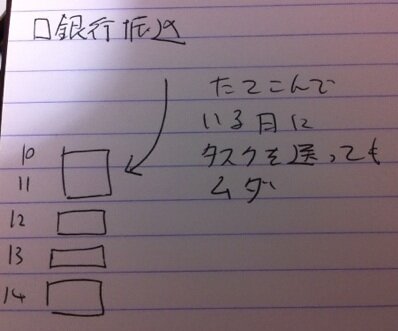 □銀行振込
たてこんで
いる日に
タスクを送っても
ムダ
10
11
12
13
14